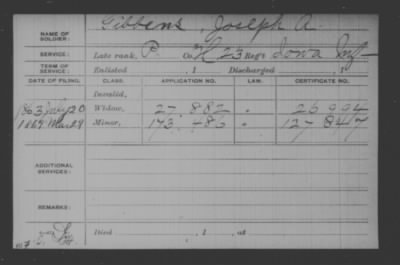 NAME OF SOLDIER: Gibbens, Joseph A.
SERVICE: Late rank, P. Co. K, 23 Reg't Iowa Inf
TERM OF SERVICE: Enlisted , 1 Discharged , 1
DATE OF FILING. CLASS. APPLICATION NO. LAW. CERTIFICATE NO.
Invalid,
1863 July 20 Widow, 27.882 26994
1869 Mar 29 Minor, 173.486 127847
ADDITIONAL SERVICES:
REMARKS:
Died , 1 , at